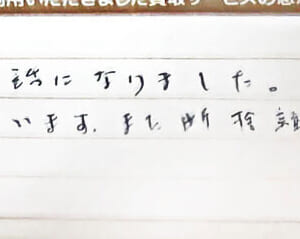 用いただきました買取サービスの感
話になりました。
います。また断捨離